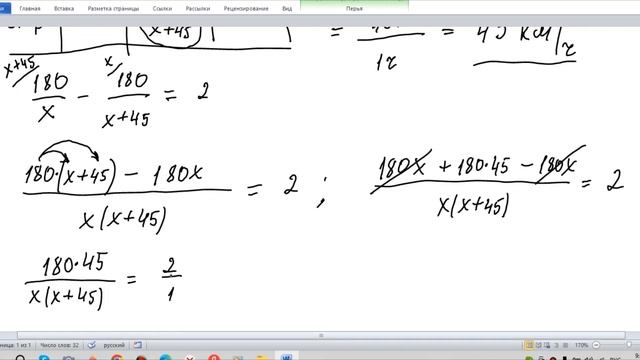 Вставка Разметка страницы Ссылки Рассылки Рецензирование Вид Перья
(x+45) = 1ч = 45 км/ч
x+45/ 180/x − x/ 180/(x+45) = 2
(180·(x+45) − 180x)/(x(x+45)) = 2 ; (180x + 180·45 − 180x)/(x(x+45)) = 2
180·45/(x(x+45)) = 2/1
1 из 1 Число слов: 32 русский 170%